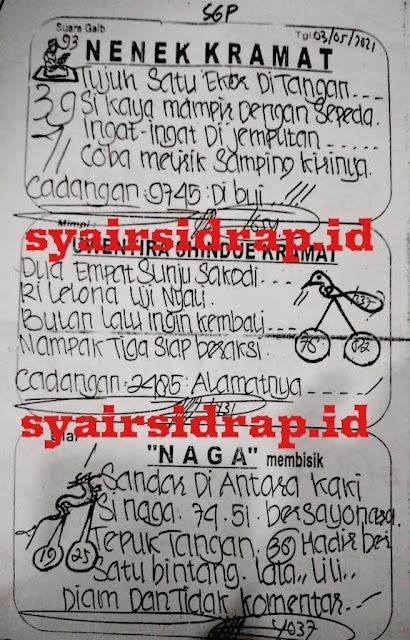 SGP
Suara Gaib
Tgl 03/05/2021
93
NENEK KRAMAT
Tujuh Satu Ekor Di Tangan....
39
Si Kaya Mampir Dengan Sepeda.
Ingat-Ingat Di Jemputan.....
Coba Melirik Samping Kirinya.
Cadangan: 9745: Di bui..!!!
Mimpi
syairsidrap.id
CHINDUE KRAMAT
Dua Empat Sunju Sakodi...
Ri Lelona Liji Ngali.
Bulan Lalu Ingin Kembali....
Nampak Tiga Siap Beraksi.
78
Cadangan: 2485: Alamatnya.....
syairsidrap.id
"NAGA" membisik
Sandar Di Antara Kaki
Si naga. 74. 51. bersayonara.
Tepuk Tangan. 36 Hadir ber
19 25
Satu bintang. lala,, Lili,.
Diam Dan Tidak Komentar..
4037